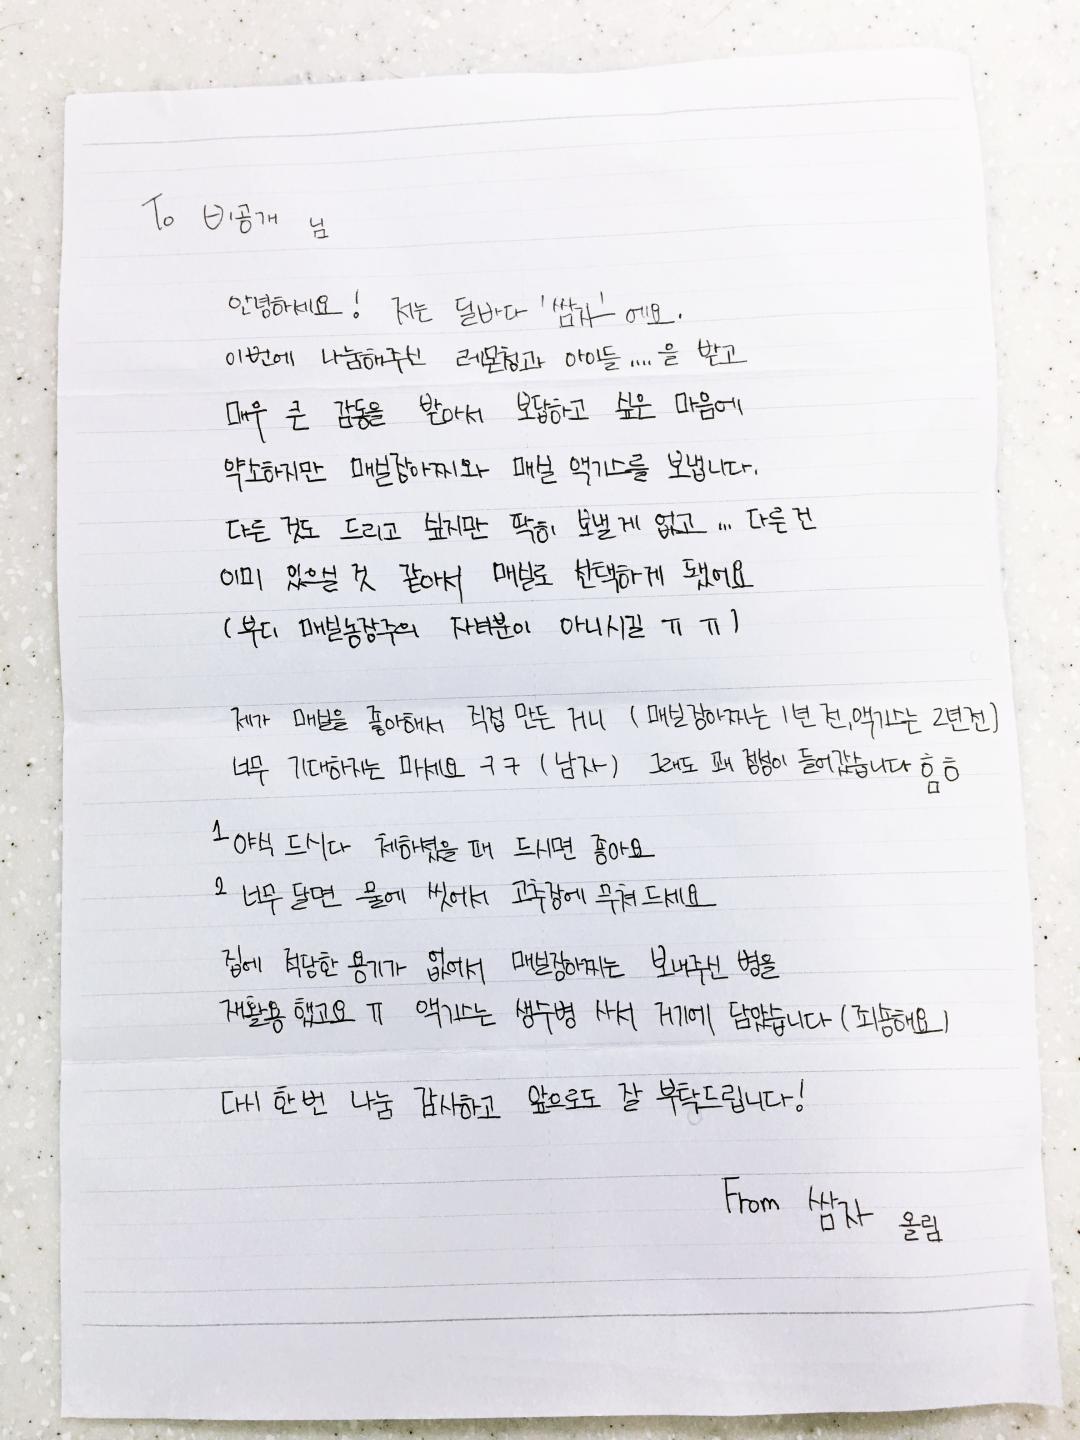 To 비공개 님
안녕하세요! 저는 딜바다 '쌈자'에요.
이번에 나눔해주신 레몬청과 아이들....을 받고
매우 큰 감동을 받아서 보답하고 싶은 마음에
약소하지만 매실장아찌와 매실 액기스를 보냅니다.
다른 것도 드리고 싶지만 딱히 보낼게 없고... 다른건
이미 있으실 것 같아서 매실로 선택하게 됐어요
(부디 매실농장주의 자녀분이 아니시길 ㅠㅠ)
제가 매실을 좋아해서 직접 만든 거니 (매실장아찌는 1년 전, 액기스는 2년전)
너무 기대하지는 마세요 ㅋㅋ (남자) 그래도 꽤 정성이 들어갔습니다 흠흠
1 야식 드시다 체하셨을 때 드시면 좋아요
2 너무 달면 물에 씻어서 고추장에 무쳐드세요
집에 적당한 용기가 없어서 매실장아찌는 보내주신 병을
재활용 했고요 ㅠ 액기스는 생수병 사서 거기에 담았습니다 (죄송해요)
다시 한번 나눔 감사하고 앞으로도 잘 부탁드립니다!
From 쌈자 올림